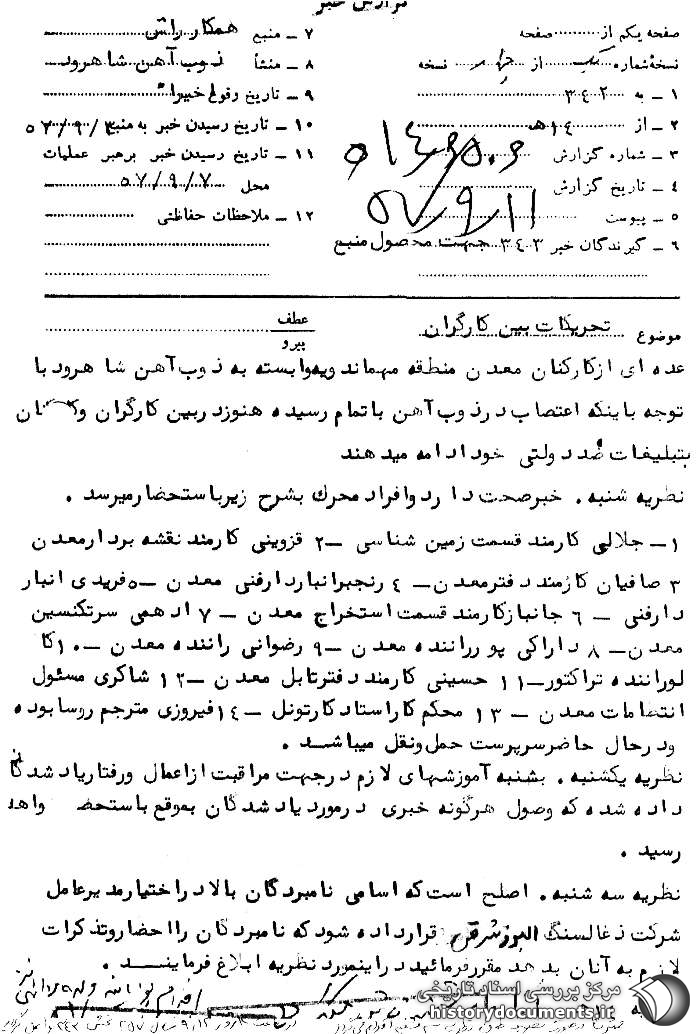 گزارش خبر
صفحه یکم از صفحه
نسخه شماره یک از نسخه
۱ – به ۳۴۲
۲ – از ۱۴ه
۳ – شماره گزارش
۴ – تاریخ گزارش ۵۷/۹/۱۱
۵ – پیوست
۶ – گیرندگان خبر ۳۴۳ جهت محصول منبع
۷ – منبع همکار راش
۸ – منشأ ذوب آهن شاهرود
۹ – تاریخ وقوع خبر
۱۰ – تاریخ رسیدن خبر به منبع ۵۷/۹/۳
۱۱ – تاریخ رسیدن خبر برهبر عملیات
محل ۵۷/۹/۷
۱۲ – ملاحظات حفاظتی
موضوع تحریکات بین کارگران
عطف
پیرو
عده ای ازکارکنان معدن منطقه مهماندویه وابسته به ذوب آهن شاهرود با
توجه باینکه اعتصاب درذوب آهن باتمام رسیده هنوزدربین کارگران
بتبلیغات ضد دولتی خود ادامه میدهند
نظریه شنبه. خبرصحت دارد وافراد محرک بشرح زیرباستحضارمیرسد.
۱– جلالی کارمند قسمت زمین شناسی –۲ قزوینی کارمند نقشه بردارمعدن
۳ صافیان کارمند دفترمعدن– ۴ رنجبرانباردارفنی معدن –۵ فریدی انبار
دارفنی – ۶ جانبازکارمند قسمت استخراج معدن – ۷ ادهمی سرتکنسین
معدن– ۸ داراکی پور راننده معدن –۹ رضوانی راننده معدن –۱۰کا
لوراننده تراکتور–۱۱ حسینی کارمند دفترتابل معدن –۱۲ شاکری مسئول
انتظامات معدن – ۱۳ محکم کاراستادکارتونل –۱۴فیروزی مترجم روسا بوده
ودرحال حاضرسرپرست حمل ونقل میباشد.
نظریه یکشنبه. بشنبه آموزشهای لازم درجهت مراقبت ازاعمال ورفتاریاد شدگان
داده شده که وصول هرگونه خبری درمورد یاد شدگان بموقع باستحض واهد
رسید.
نظریه سه شنبه. اصلح است که اسامی نامبردگان بالا دراختیارمدیرعامل
شرکت ذغالسنگ البرزشرقی قرارداده شود که نامبردگان رااحضاروتذکرات
لازم به آنان بدهد مقررفرمائید دراینمورد نظریه ابلاغ فرمایند.
مرکز بررسی اسناد تاریخی
historydocuments.ir